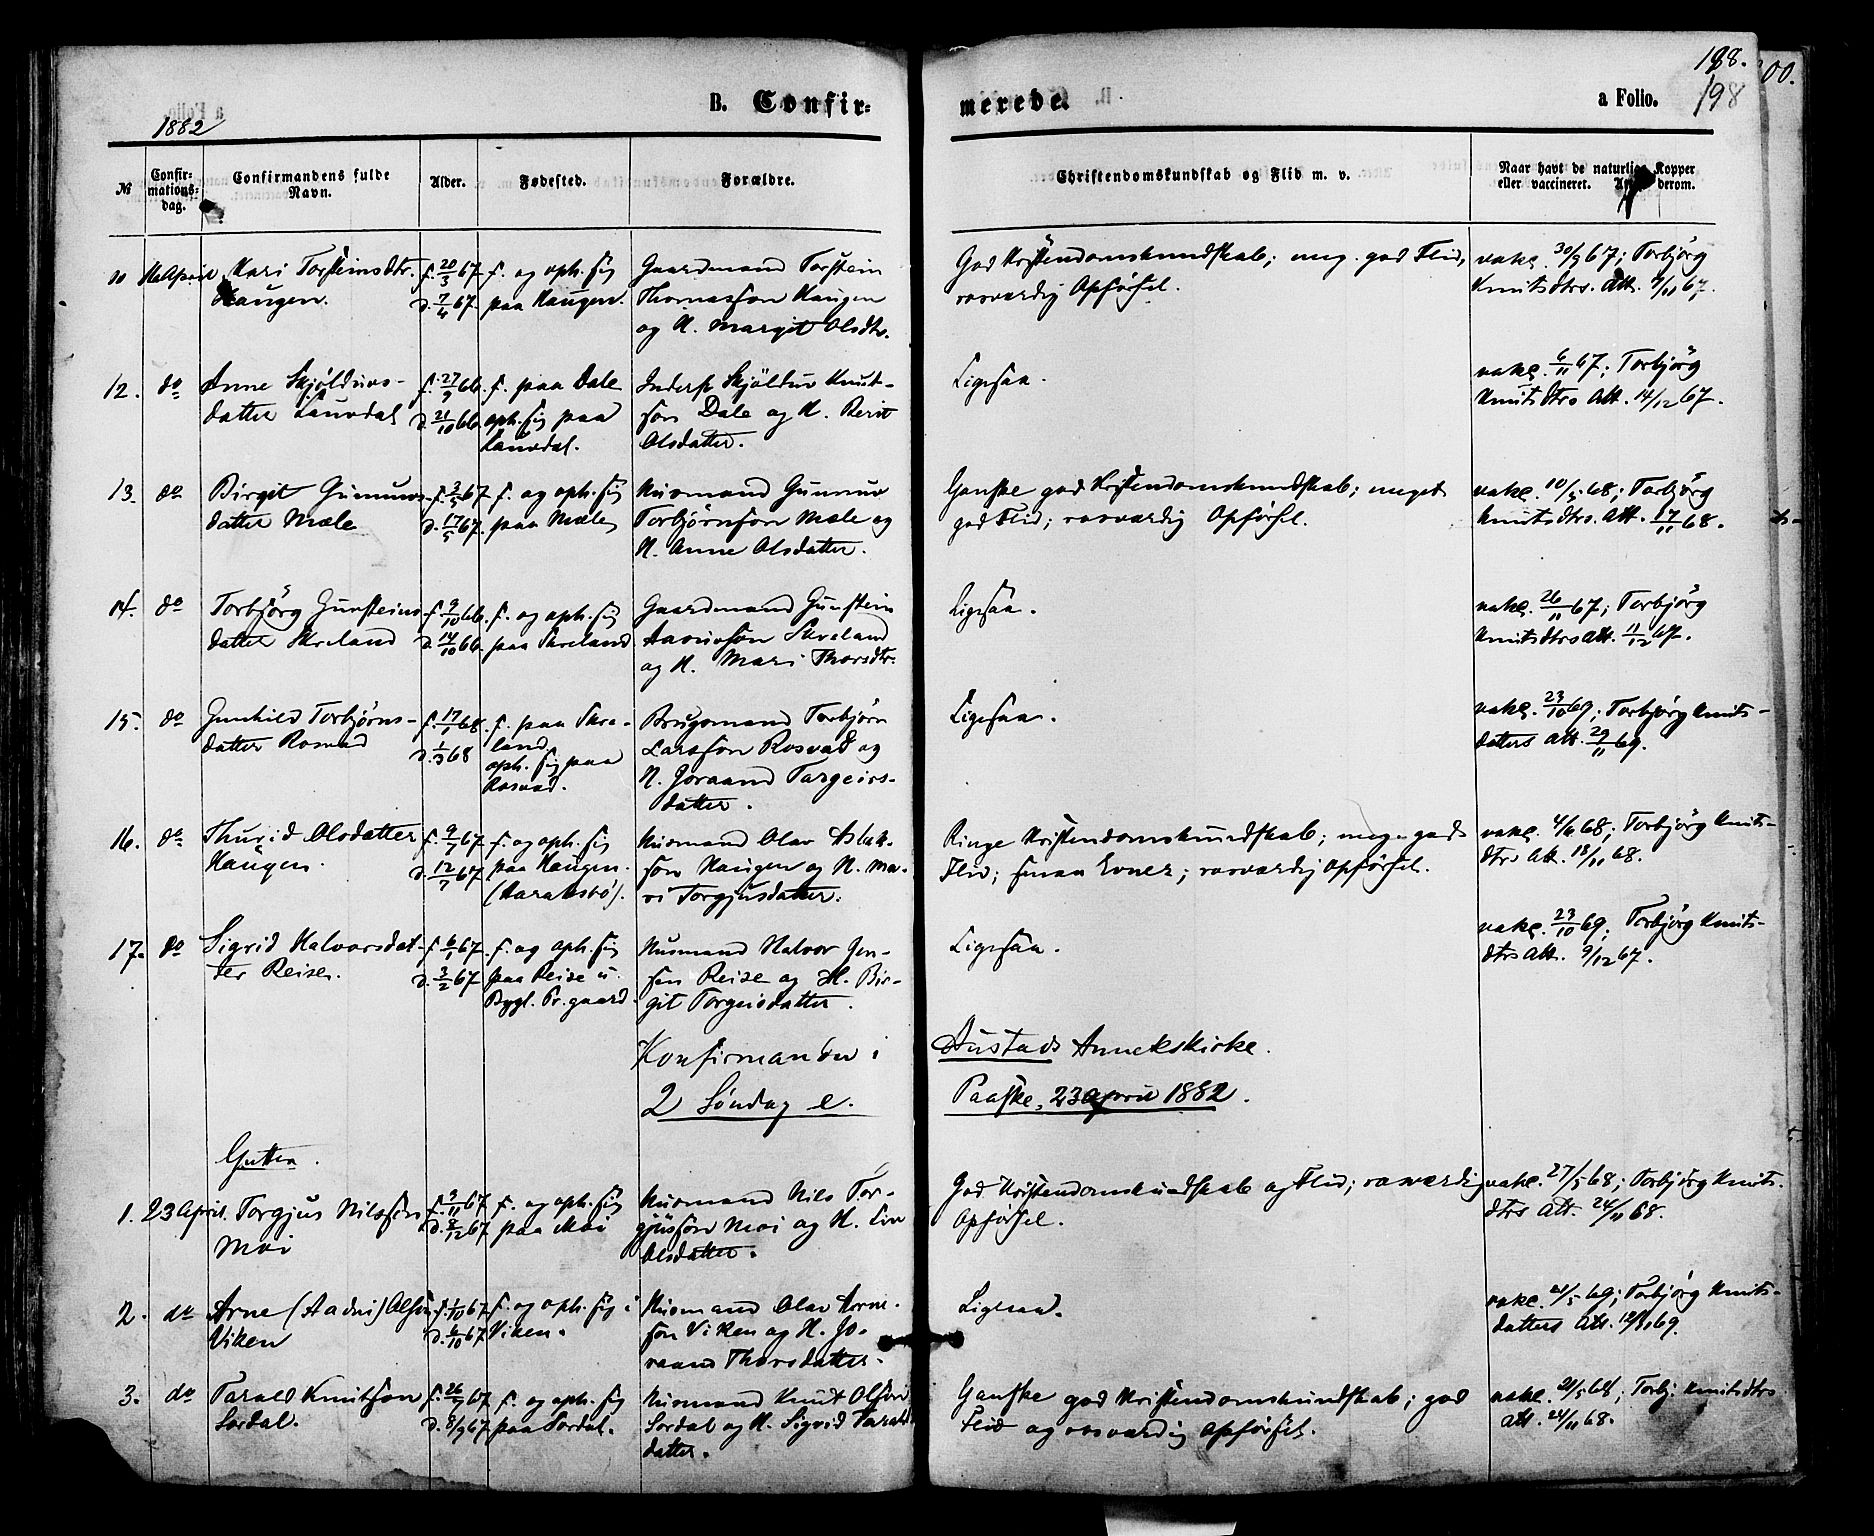 188.
198
00.
1882
B. Confir=
merede.
a Folio.
№
Confir-
mations-
dag.
Confirmandens fulde
Navn.
Alder.
Fødested.
Forældre.
Christendomskundskab og Flid m. v.
Naar havt de naturlige Kopper
eller vaccineret. derom.
Kari Torsteinsdtr.
Haugen.
f. 20/3 67
d. 7/4 67.
f. og oph. sig
paa Haugen.
Gaardmand Torstein
Thomassøn Haugen
og H. Margit Olsdtr.
God Kristendomskundskab; meg. god Flid,
rosværdig Opførsel.
vakc. 30/9 67; Torbjörg
Knutsdtrs. Att. 9/11 67.
12.
do
Anne Skjøldvors-
datter Lauvdal
f. 27/9 66.
d. 21/10 66.
f. paa Dale
oph. sig paa
Lauvdal.
Inderst Skjöldur Knut-
søn Dale og H. Berit
Olsdatter.
Ligesaa.
vakc. 6/11 67; Torbjörg
Knutsdtrs Att. 14/12 67.
13.
do
Birgit Gunnuvs-
datter Mæle
f. 3/5 67
d. 17/5 67.
f. og oph. sig
paa Mæle
Husmand Gunnuv
Torbjørnsøn Mæle og
H. Anne Olsdatter.
Ganske god Kristendomskundskab; meget
god Flid; rosværdig Opførsel.
vakc. 10/5 68; Torbjörg
Knutsdtrs. Att. 17/11 68.
14.
do
Torbjörg Gunsteins-
datter Skreland
f. 9/10 66.
d. 14/10 66.
f. og oph. sig
paa Skreland
Gaardmand Gunstein
Aavuvsøn Skreland
og H. Mari Thorsdtr.
Ligesaa.
vakc. 26/11 67; Torbjörg
Knutsdtrs Att. 11/12 67.
15.
do
Gunhild Torbjørns-
datter Rosvad
f. 17/1 68.
d. 1/3 68
f. paa Skre-
land,
oph. sig paa
Rosvad.
Brugsmand Torbjørn
Larssøn Rosvad og
H. Joraand Targeirs-
datter.
Ligesaa.
vakc. 23/10 69; Torbjörg Knuts-
datters Att. 29/11 69.
16.
do
Thurid Olsdatter
Haugen.
f. 9/7 67.
d. 12/7 67.
f. og oph. sig
paa Haugen.
(Harakstbö).
Husmand Olav Aslak-
søn Haugen og H. Ma-
ri Torgjusdatter.
Ringe Kristendomskundskab; meget god
Flid; smaa Evner; rosværdig Opførsel.
vakc. 4/6 68; Torbjörg Knuts-
dtrs Att. 18/11 68.
17.
do
Sigrid Halvorsdat-
ter Reise.
f. 6/1 67.
d. 3/2 67
f. og oph. sig
paa Reise u.
Bygl. Pr.gaard.
Husmand Halvor Jen-
søn Reise og H. Bir-
git Torgeisdatter.
Ligesaa.
vakc. 23/10 69; Torbjörg Knuts-
dtrs Att. 9/12 67.
Konfirmander i Austads Annekskirke.
2 Søndag e. Paaske, 23 april 1882.
Gutter.
1.
23 April.
Torgjus Nilssøn
Moi
f. 3/11 67
d. 8/12 67
f. og oph. sig
paa Moi
Husmand Nils Tor-
gjussøn Moi og H. Liv
Olsdatter.
God Kristendomskundskab og Flid; rosværdig
Opførsel.
vakc. 27/5 68; Torbjörg Knuts-
dtrs Att. 24/11 68.
2.
do
Arne (Aadni) Olsøn
Viken
f. 1/10 67
d. 6/10 67
f. og oph. sig i
Viken.
Husmand Olav Arne-
søn Viken og H. Jo-
raand Thorsdatter.
Ligesaa.
vakc. 21/5 69; Torbjörg Knuts-
datters Att. 12/8 69.
3.
do
Tarald Knutssøn
Sordal.
f. 26/7 67
d. 8/9 67
f. og oph. sig
paa Sordal.
Husmand Knut Olssøn
Sordal og H. Sigrid Taralds-
datter.
Ganske god Kristendomskundskab; god
Flid og rosværdig Opførsel.
vakc. 21/5 68; Torbj. Knutsdtrs
Att. 24/11 68.